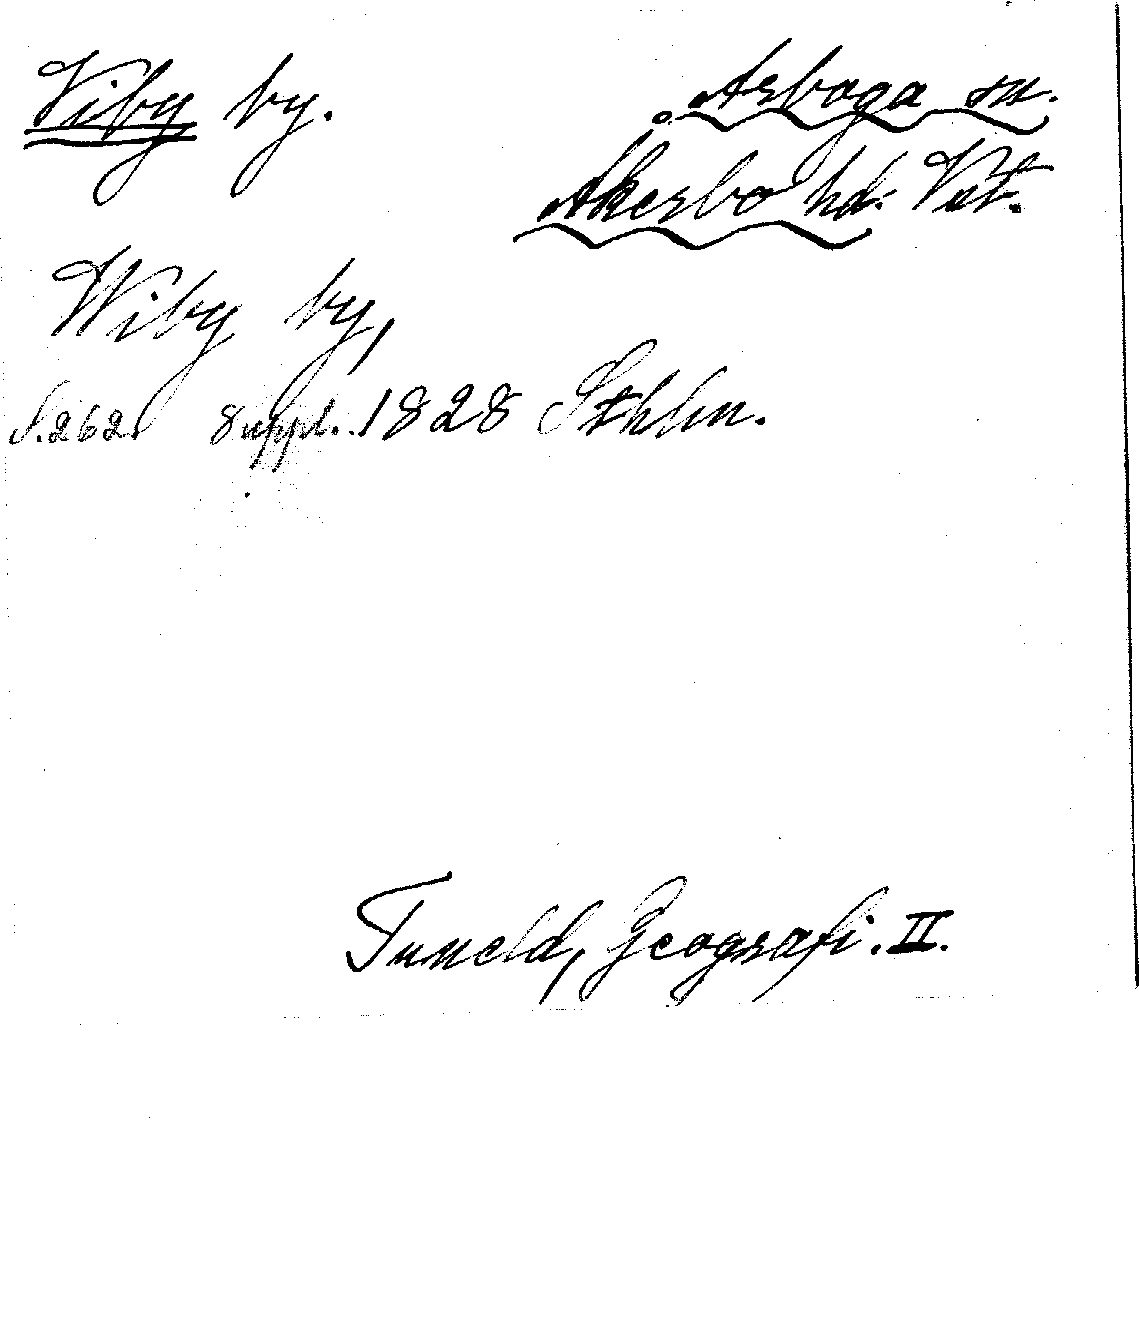 Viby by. Arboga sn.
Åkerbo hd. Vst.
Wiby by,
S. 262. Suppl. 1828 Sthlm.
Tuneld, Geografi. II.